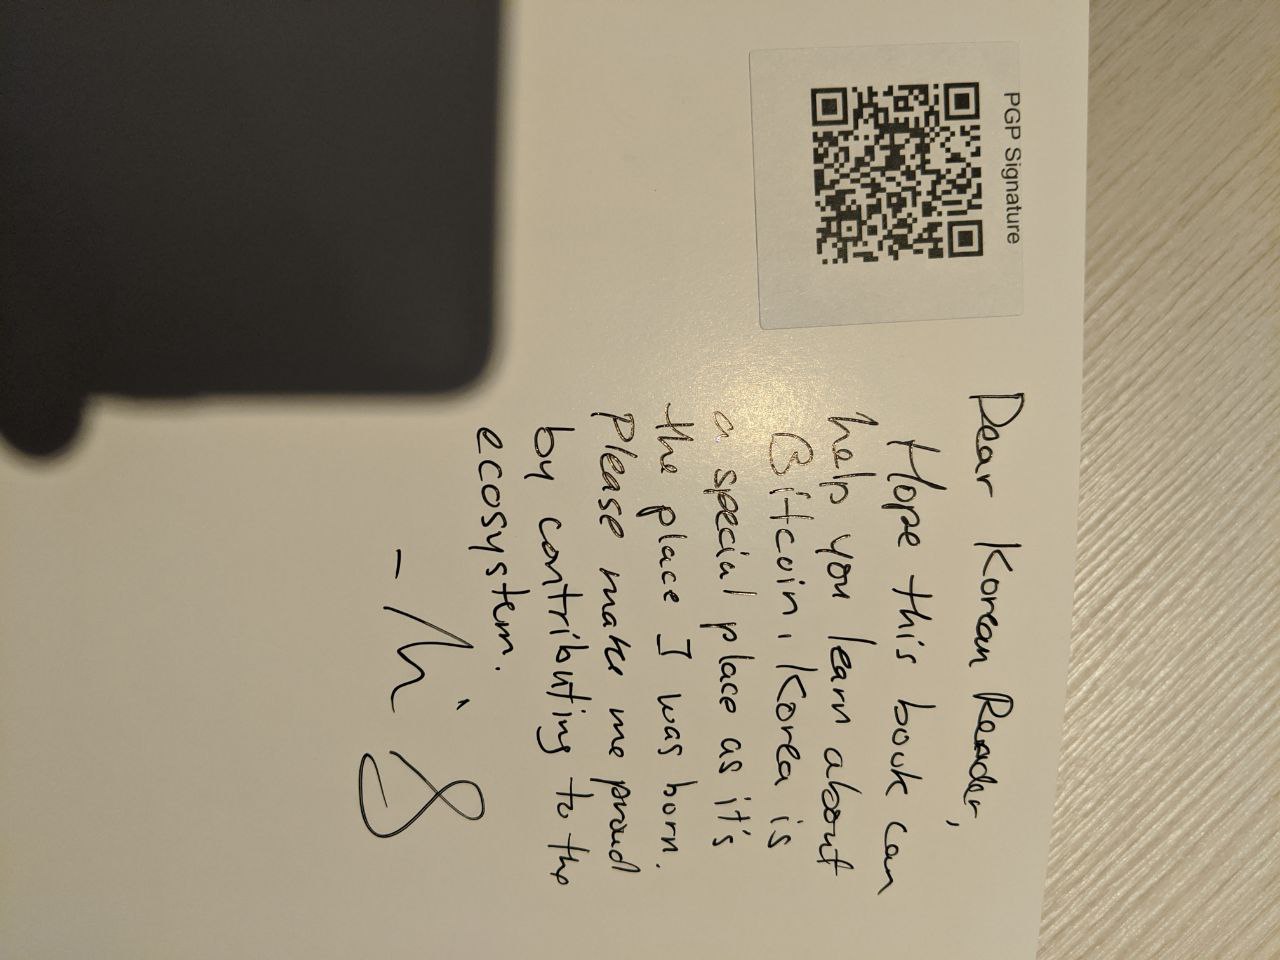 PGP Signature
Dear Korean Reader,
Hope this book can
help you learn about
Bitcoin, Korea is
a special place as it's
the place I was born.
Please make me proud
by contributing to the
ecosystem.